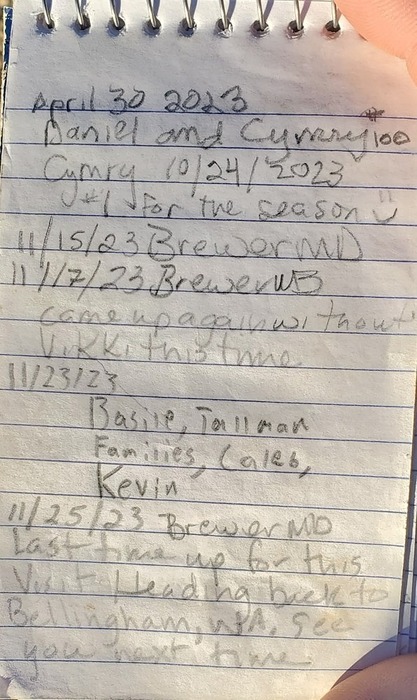 April 30 2023
Daniel and Cymry #100
Cymry 10/24/2023
#1 for the season
11/15/23 Brewer MD
11/17/23 Brewer MD
came up again without
Vikki this time
11/23/23
Basile, Tallman
Families, Caleb,
Kevin
11/25/23 Brewer MD
Last time up for this
Visit Heading back to
Bellingham, WA. See
you next time